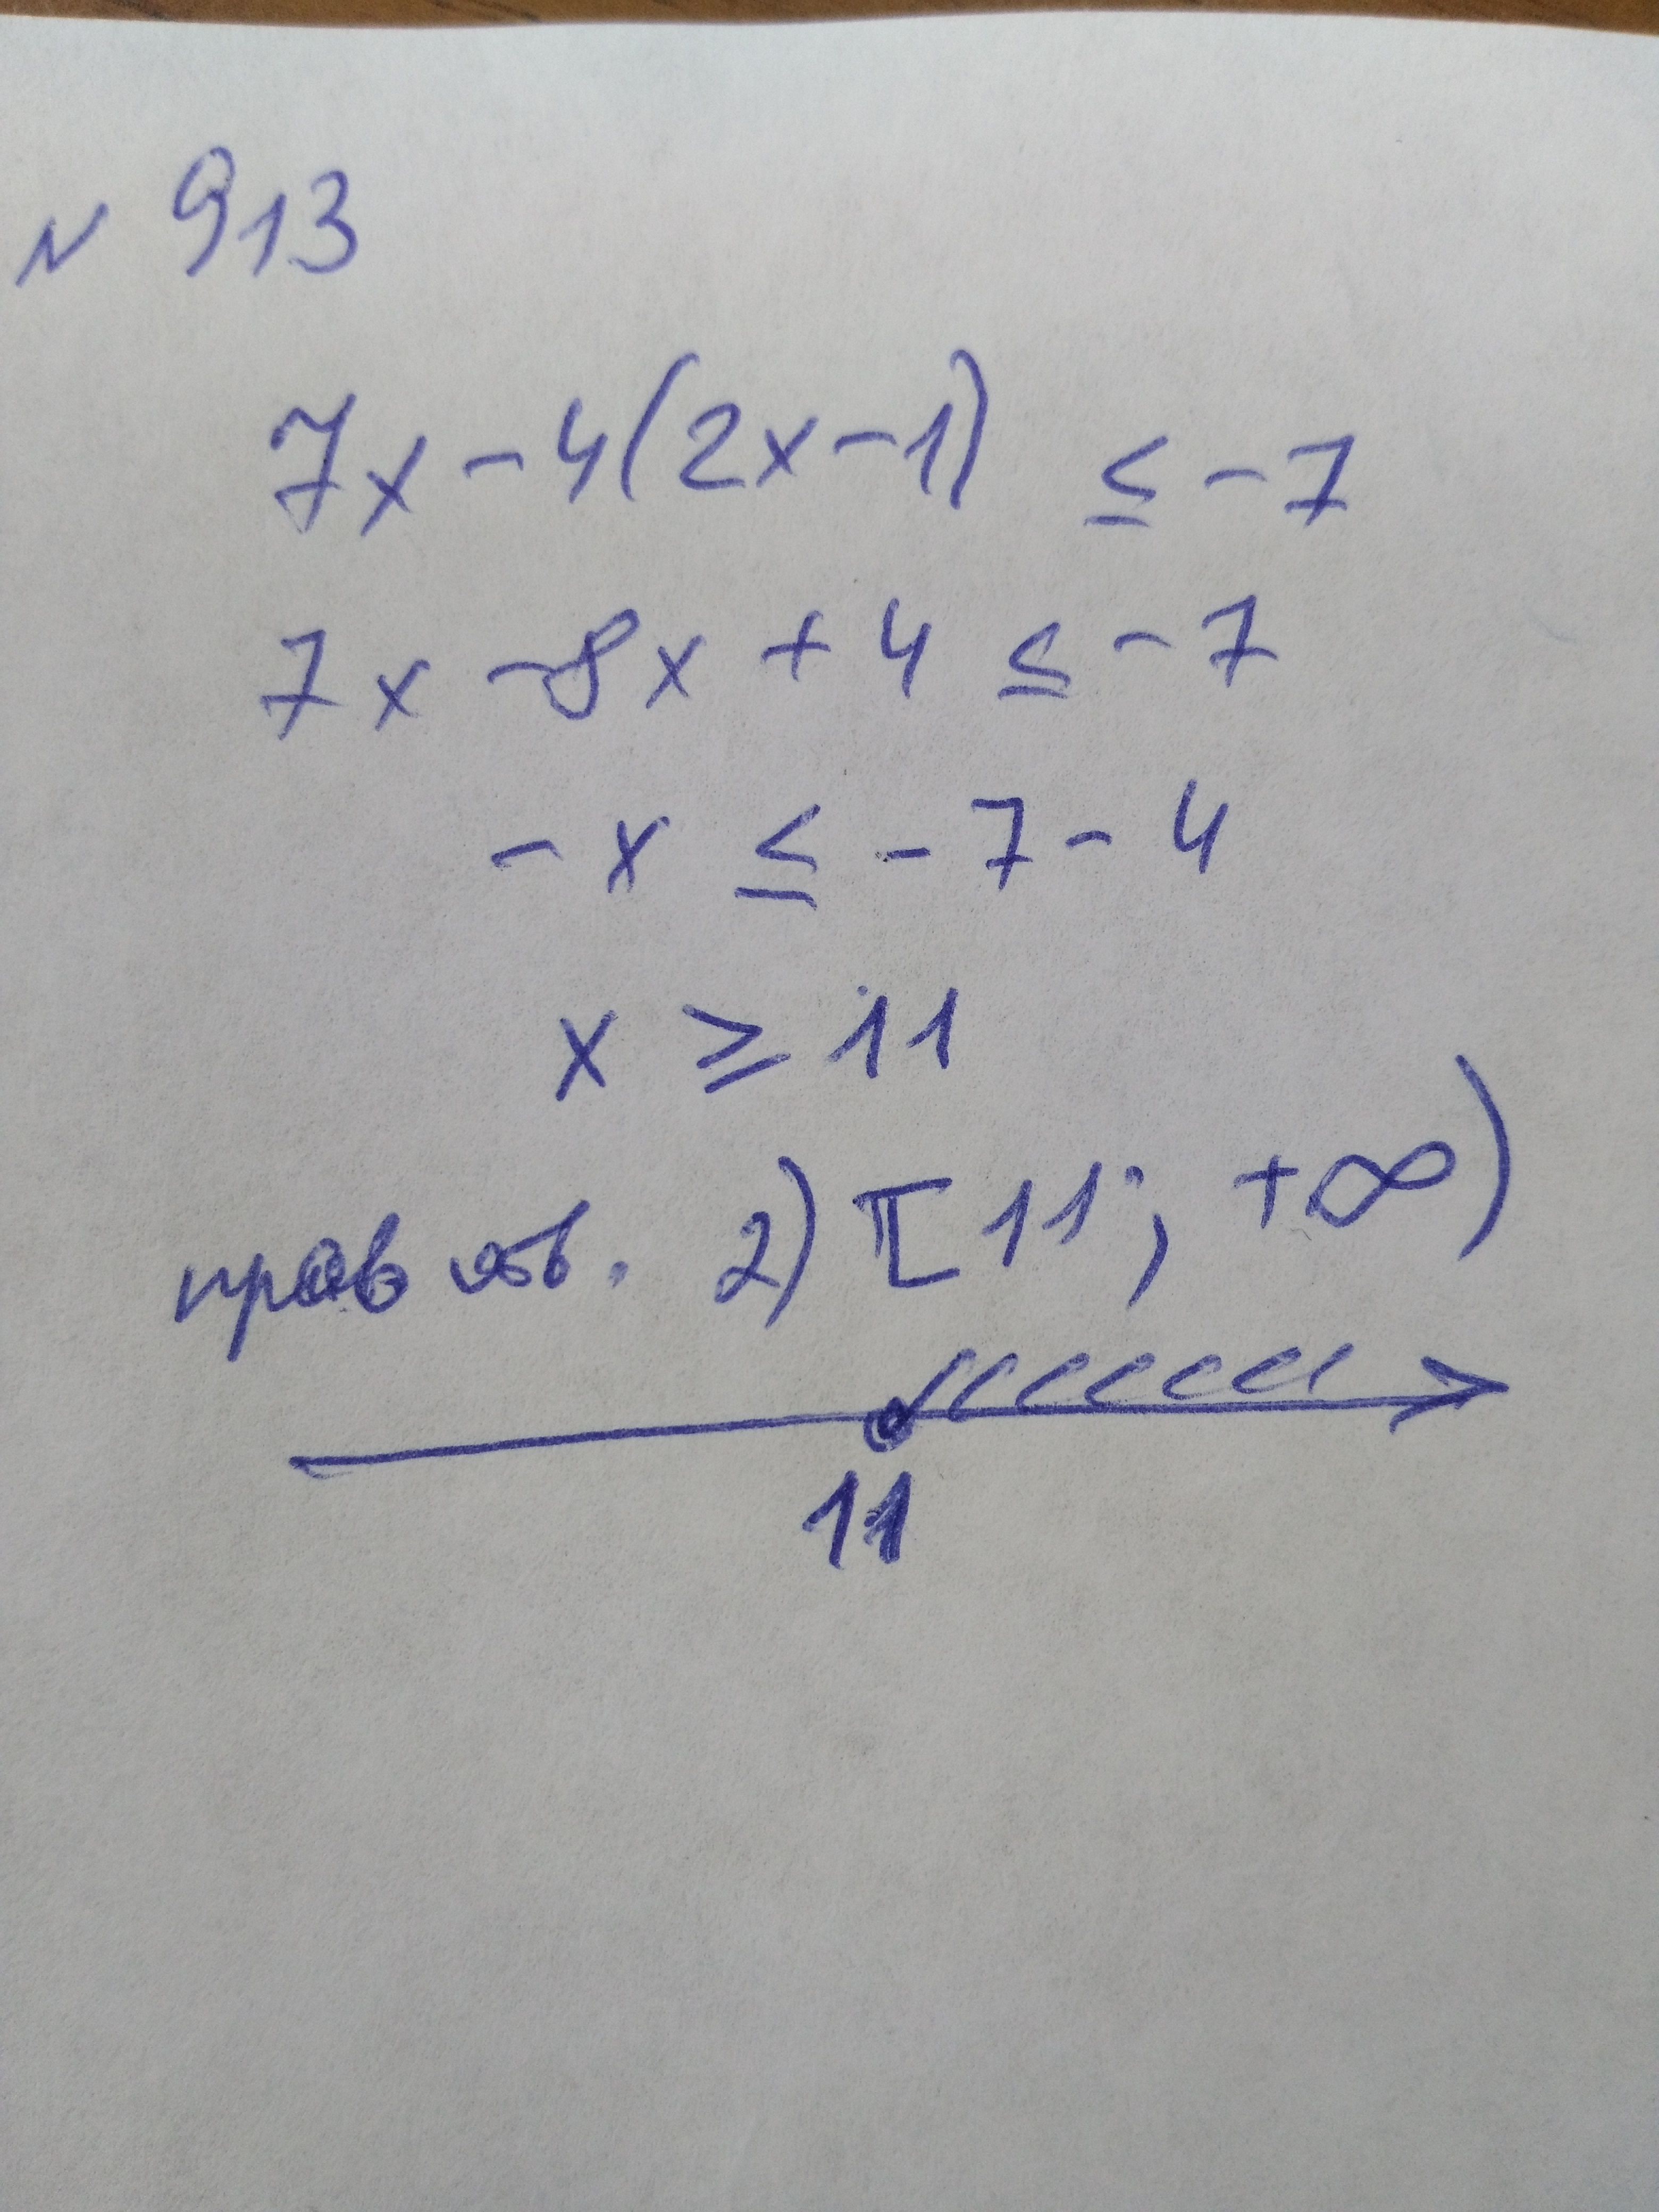 N 913
7x - 4(2x - 1) ≤ - 7
7x - 8x + 4 ≤ - 7
- x ≤ - 7 - 4
x ≥ 11
прав от. 2) [11; +∞)
11